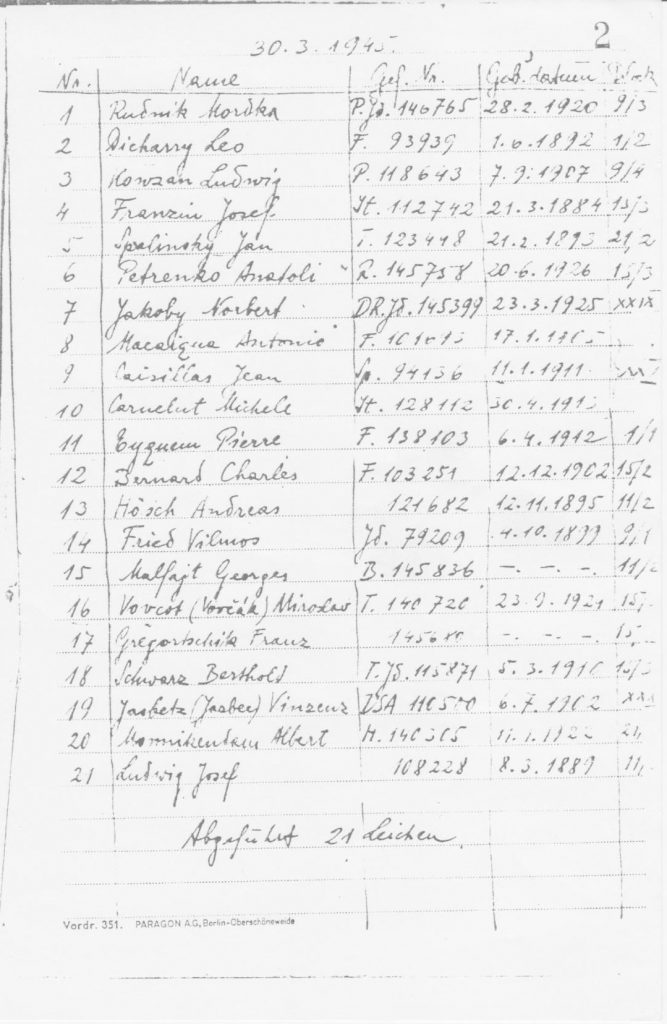 2
30.3.1945.
Nr. Name Gef. Nr. Geb. datum Block
1 Rudnik Mordka P.Jd. 146765 28.2.1920 9/3
2 Dicharry Leo F. 93939 1.6.1892 1/2
3 Kowzan Ludwig P. 118643 7.9.1907 9/4
4 Franzin Josef It. 112742 21.3.1884 15/3
5 Spalinsky Jan T. 123448 21.2.1893 21/2
6 Petrenko Anatoli R. 145758 20.6.1926 15/3
7 Jakoby Norbert DR.Jd. 145399 23.3.1925 XXIX
8 Macaiqua Antonio F. 17.1.
9 Caisillas Jean Sp. 94136 11.1.1911
10 Carnelut Michele It. 128112 30.4.1913
11 Eyquem Pierre F. 138103 6.4.1912 1/1
12 Bernard Charles F. 103251 12.12.1902 15/2
13 Hösch Andreas 121682 12.11.1895 11/2
14 Fried Vilmos Jd. 79209 4.10.1899 9/1
15 Malfajt Georges B. 145836 -. -. -. 11/2
16 Vovcot (Vorčák) Miroslav T. 140720 23.9.1921 15/
17 Gregortschitk Franz -. -. -. 15/
18 Schwarz Berthold T.Jd. 115871 5.3.1910 15/3
19 Jasbetz (Jasbec) Vinzenz DSA 110500 6.7.1902
20 Monnikendam Albert H. 140305 11.1.1922 21/
21 Ludwig Josef 108228 8.3.1889 11/
Abgeführt 21 Leichen.
Vordr. 351. PARAGON A.G., Berlin-Oberschöneweide